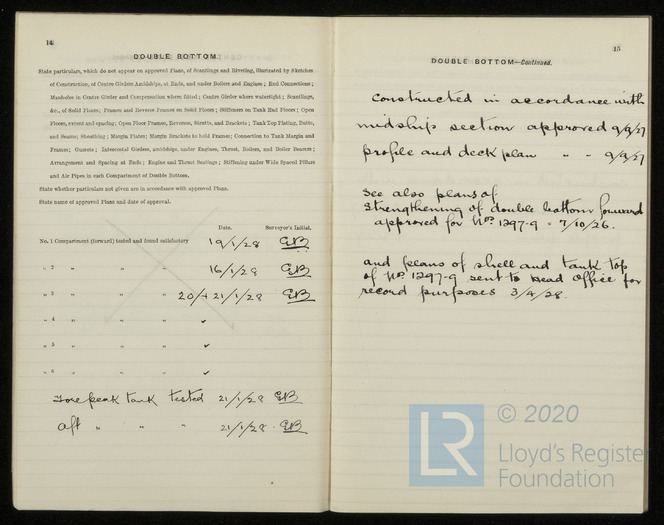 14
DOUBLE BOTTOM.
State particulars, which do not appear on approved Plans, of Scantlings and Riveting, illustrated by Sketches
of Construction, of Centre Girders Amidships, at Ends, and under Boilers and Engines; End Connections;
Manholes in Centre Girder and Compensation where fitted; Centre Girder where watertight; Scantlings,
&c., of Solid Floors; Frames and Reverse Frames on Solid Floors; Stiffeners on Tank End Floors; Open
Floors, extent and spacing; Open Floor Frames, Reverses, Struts, and Brackets; Tank Top Plating, Butts,
and Seams; Sheathing; Margin Plates; Margin Brackets to hold Frames; Connection to Tank Margin and
Frames; Gussets; Intercostal Girders, amidships, under Engines, Thrust, Boilers, and Boiler Bearers;
Arrangement and Spacing at Ends; Engine and Thrust Seatings; Stiffening under Wide Spaced Pillars
and Air Pipes in each Compartment of Double Bottom.
State whether particulars not given are in accordance with approved Plans.
State name of approved Plans and date of approval.
Date. Surveyor's Initial.
No. 1 Compartment (forward) tested and found satisfactory 19/1/28 GB
„ 2 „ „ „ 16/1/28 GB
„ 3 „ „ „ 20/+ 21/1/28 GB
„ 4 „ „ „ ✓
„ 5 „ „ „ ✓
„ 6 „ „ „ ✓
Fore peak tank tested 21/1/28 GB
Aft „ „ „ 21/1/28 . GB
15
DOUBLE BOTTOM—Continued.
Constructed in accordance with
midship section approved 9/9/27
profile and deck plan „ „ 9/9/27
See also plans of
strengthening of double bottom forward
approved for Nos 1297-9 - 7/10/26.
and plans of shell and tank top
of No. 1297-9 sent to Head Office for
record purposes 3/4/28.
© 2020
LR
Lloyd's Register
Foundation